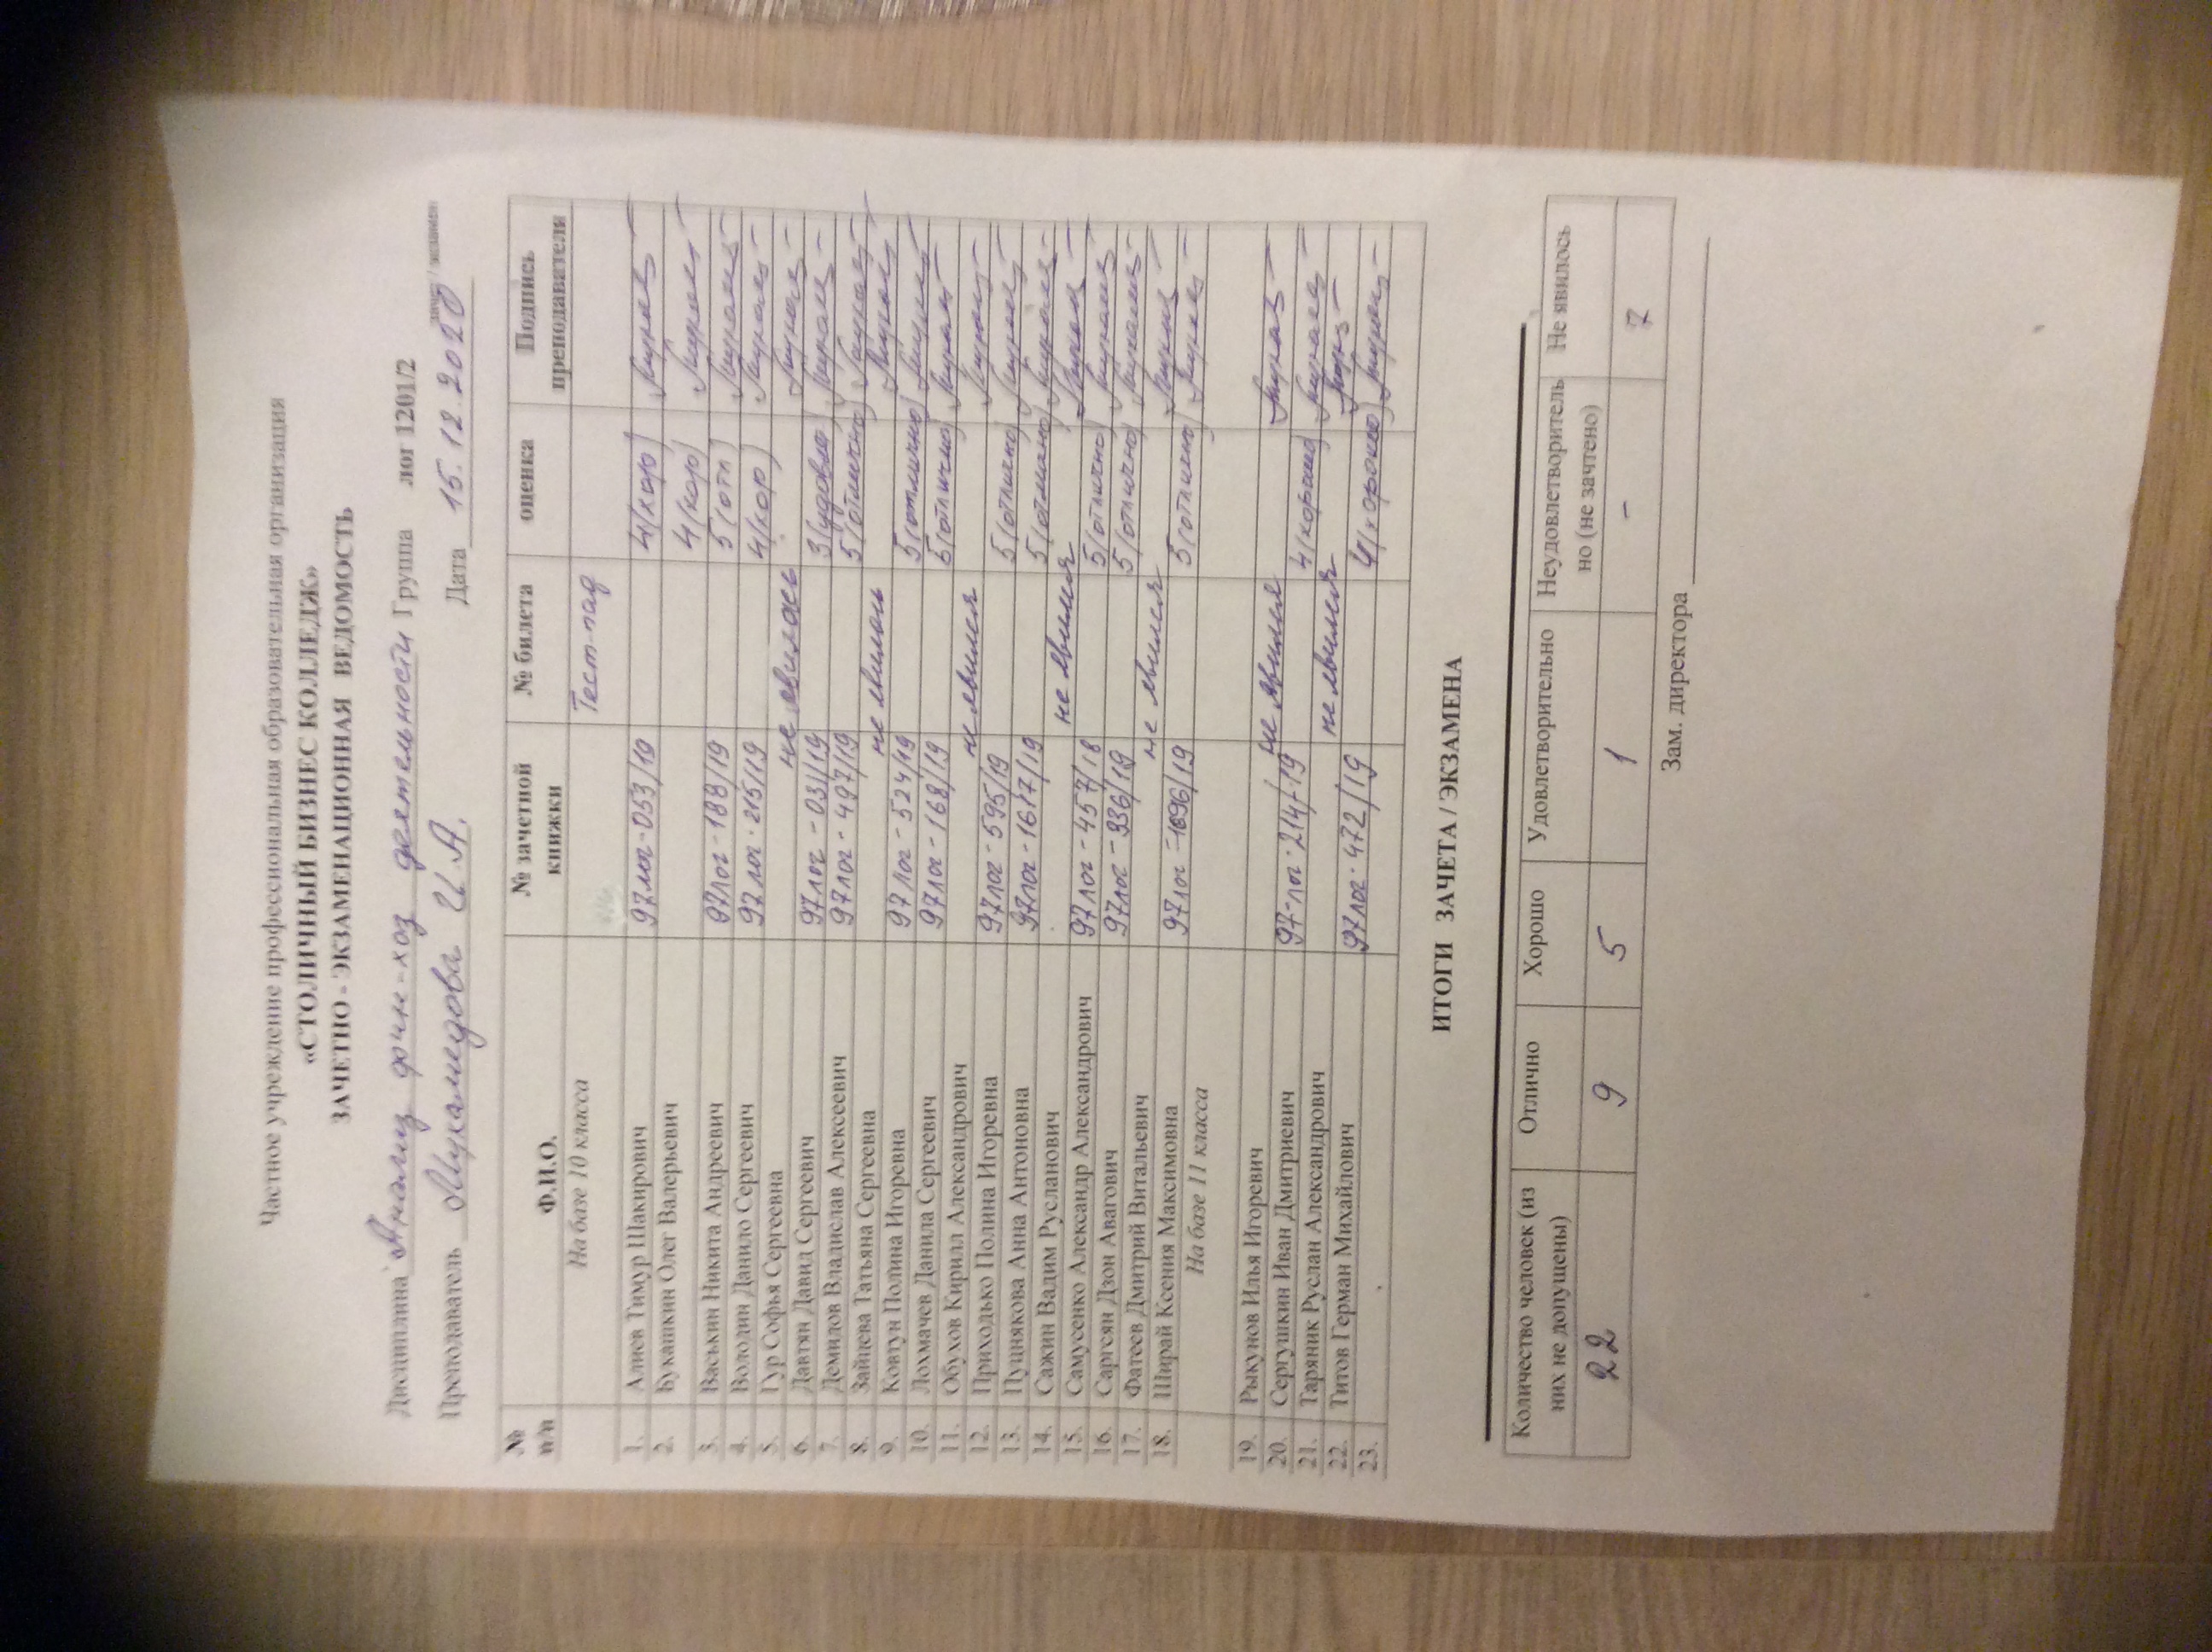 Частное учреждение профессиональная образовательная организация
«СТОЛИЧНЫЙ БИЗНЕС КОЛЛЕДЖ»
ЗАЧЕТНО - ЭКЗАМЕНАЦИОННАЯ ВЕДОМОСТЬ
Дисциплина Анализ фин-хоз деятельности Группа лог 1201/2
зачет / экзамен
Преподаватель Мухамедова И.А. Дата 15.12.2020
№ п/п Ф.И.О. № зачетной книжки № билета оценка Подпись преподавателя
На базе 10 класса Тест-пад
1. Алиев Тимур Шакирович 97лог-053/19 4(хор)
2. Букашкин Олег Валерьевич 4(хор)
3. Васькин Никита Андреевич 97лог-188/19 5(отл)
4. Володин Данило Сергеевич 97лог-215/19 4(хор)
5. Гур Софья Сергеевна не явилась
6. Давтян Давид Сергеевич 97лог-031/19 3(удовл)
7. Демидов Владислав Алексеевич 97лог-497/19 5(отлично)
8. Зайцева Татьяна Сергеевна не явилась
9. Ковтун Полина Игоревна 97лог-524/19 5(отлично)
10. Лохмачев Данила Сергеевич 97лог-168/19 5(отлично)
11. Обухов Кирилл Александрович не явился
12. Приходько Полина Игоревна 97лог-595/19 5(отлично)
13. Пуцнякова Анна Антоновна 97лог-1617/19 5(отлично)
14. Сажин Вадим Русланович не явился
15. Самусенко Александр Александрович 97лог-457/18 5(отлично)
16. Саргсян Дзон Авагович 97лог-936/19 5(отлично)
17. Фатеев Дмитрий Витальевич не явился
18. Ширай Ксения Максимовна 97лог-1696/19 5(отлично)
На базе 11 класса
19. Рыкунов Илья Игоревич не явился
20. Сергушкин Иван Дмитриевич 97-лог-214/19 4(хорошо)
21. Таряник Руслан Александрович не явился
22. Титов Герман Михайлович 97лог-472/19 4(хорошо)
23.
ИТОГИ ЗАЧЕТА / ЭКЗАМЕНА
Количество человек (из них не допущены) Отлично Хорошо Удовлетворительно Неудовлетворитель но (не зачтено) Не явилось
22 9 5 1 - 7
Зам. директора